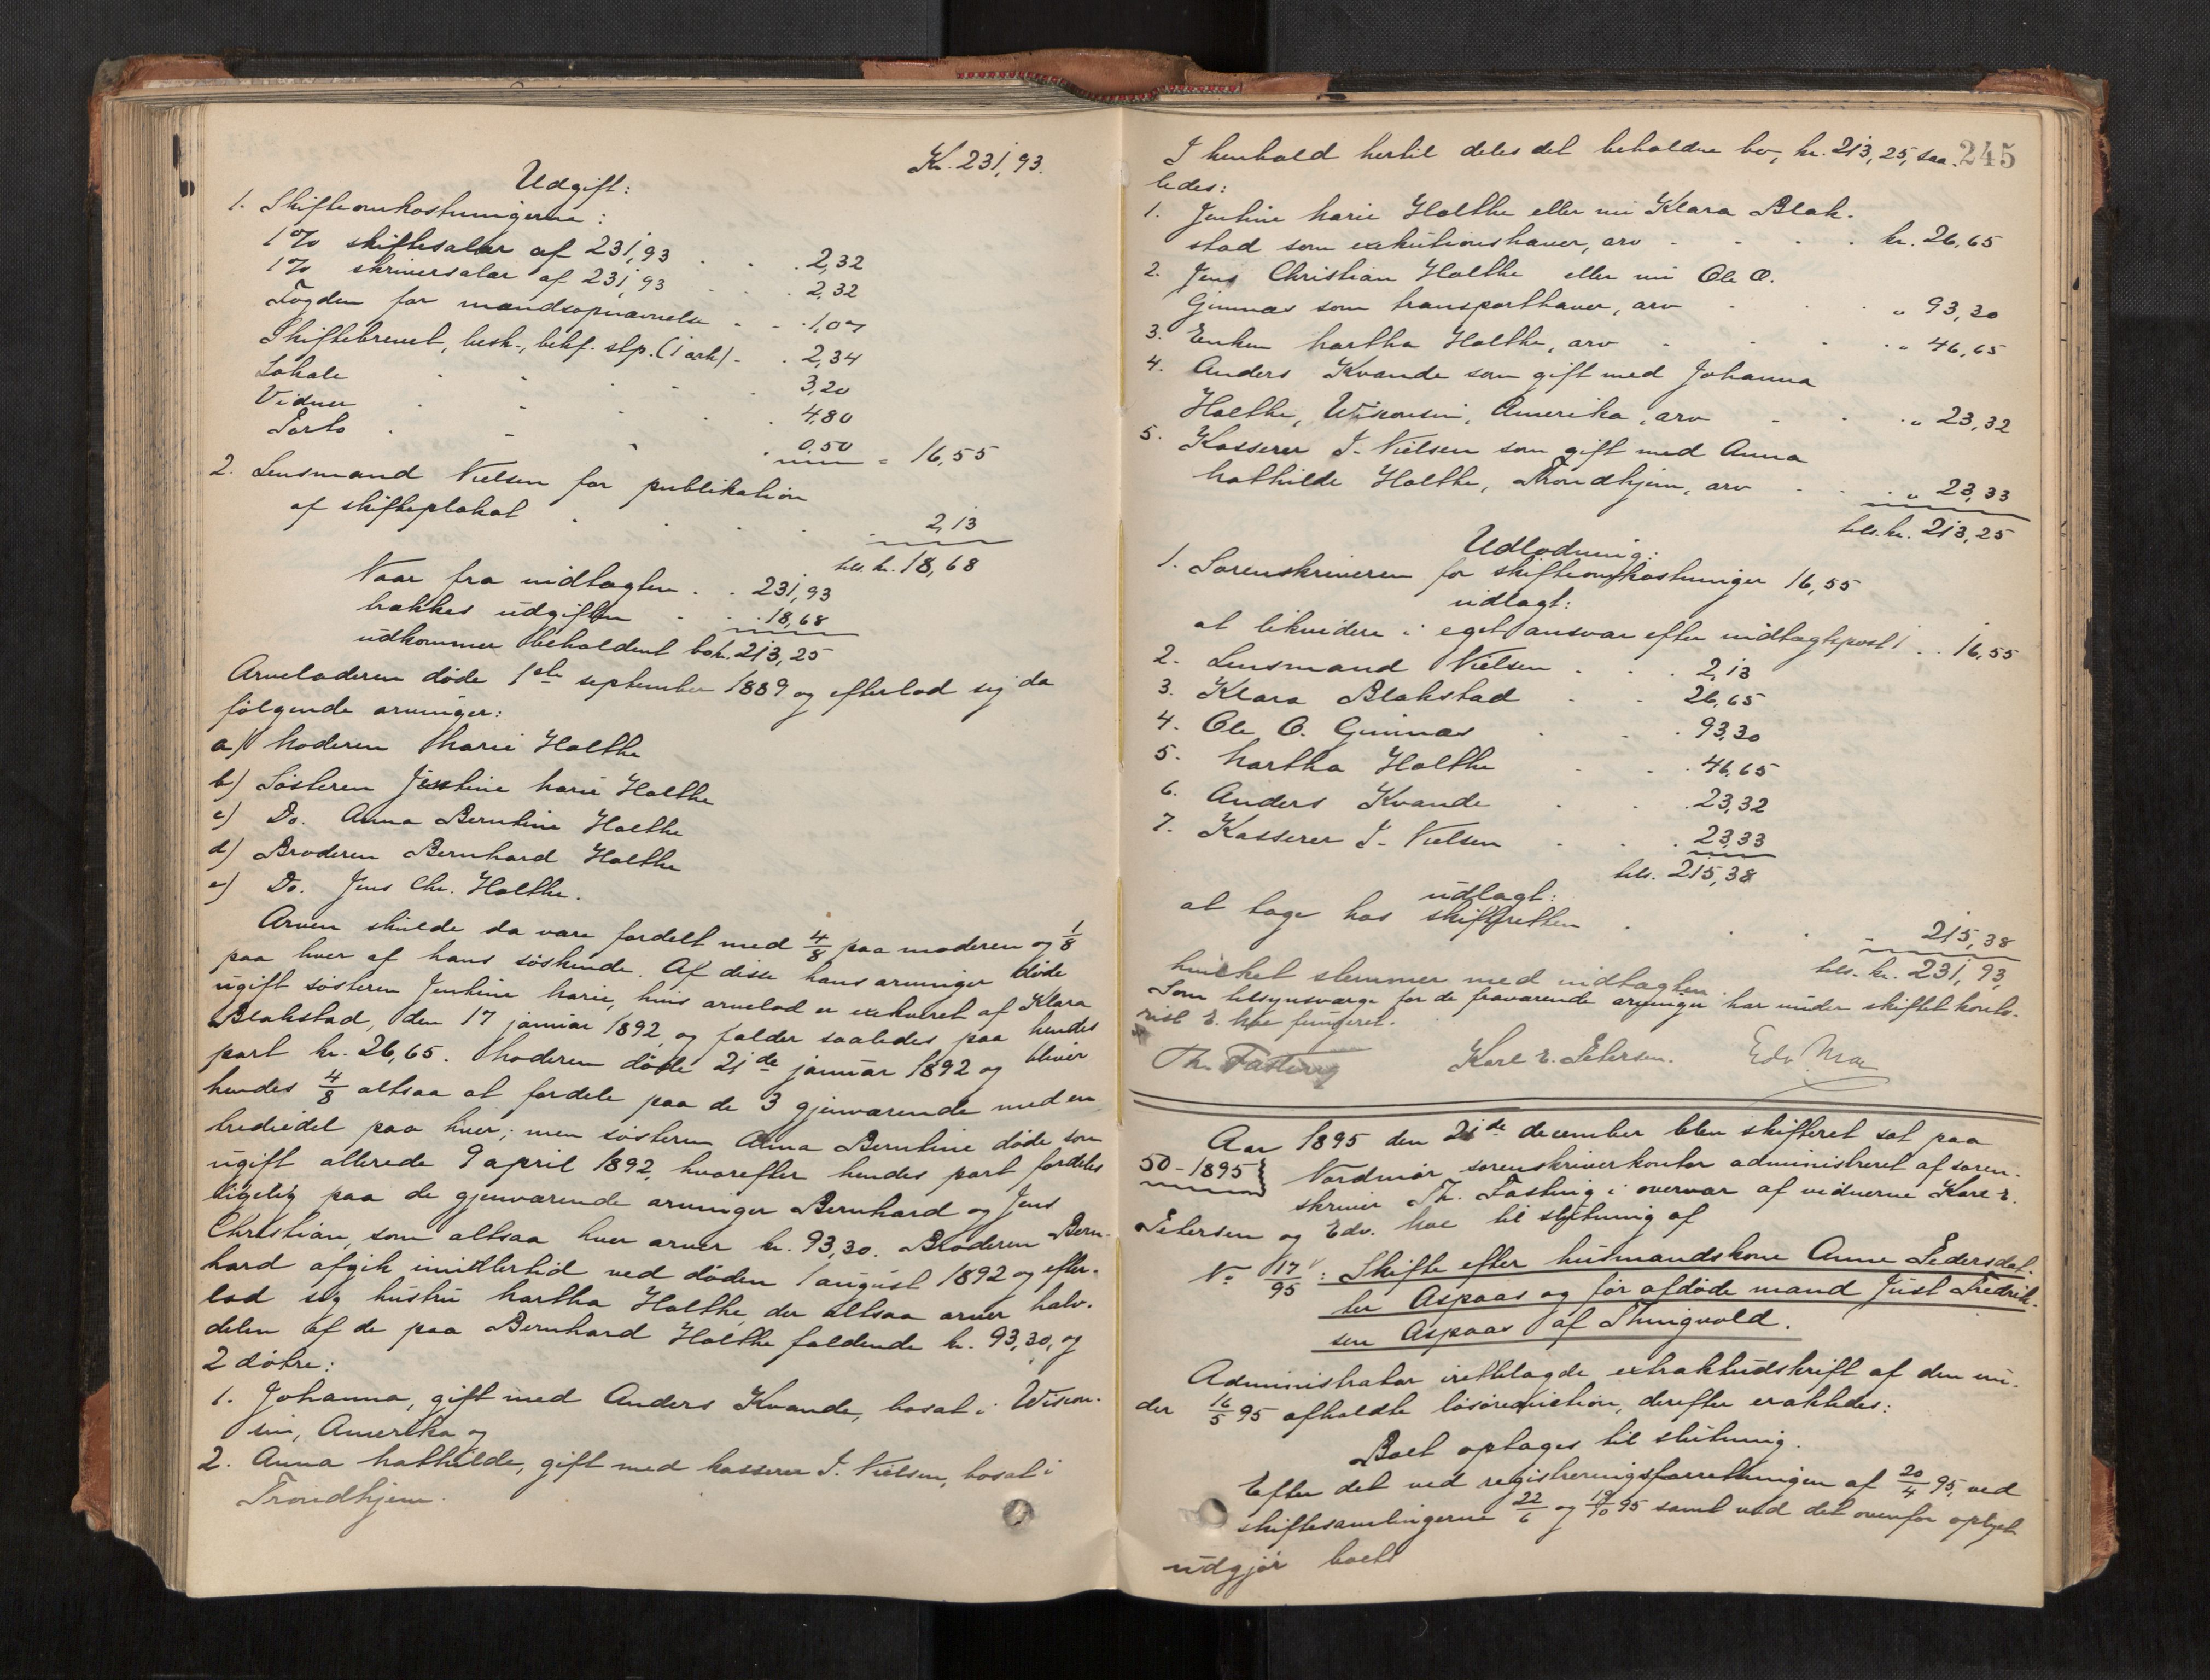 Kr. 231,93.
Udgift:
1. Skifteomkostningerne:
1% skiftesalær af 231,93 . . . 2,32
1% skriversalær af 231,93 . . . 2,32
Fogden for mandsopnævnelse . . . 1,07
Skiftebrevet, besk., bekf. stp. (1 ark) . . 2,34
Lokale . . . . 3,20
Vidner . . . . 4,80
Porto . . . . 0,50 = 16,55
2. Lensmand Nielsen for publikation
af skifteplakat . . . . 2,13
tils. kr. 18,68
Naar fra indtægten . . 231,93
trækkes udgiften . . 18,68
udkommer beholdent bo kr. 213,25
Arveladeren døde 1ste september 1889 og efterlod sig da
følgende arvinger:
a) Moderen Marie Holthe
b) Søsteren Jentine Marie Holthe
c) Do. Anna Berntine Holthe
d) Broderen Bernhard Holthe
e) Do. Jens Chr. Holthe.
Arven skulde da være fordelt med 4/8 paa moderen og 1/8
paa hver af hans søskende. Af disse hans arvinger døde
ugift søsteren Jentine Marie, hvis arvelod er exekveret af Klara
Blakstad, den 17 januar 1892, og falder saaledes paa hendes
part kr. 26,65. Moderen døde 21de januar 1892 og bliver
hendes 4/8 altsaa at fordele paa de 3 gjenværende med en
trediedel paa hver; men søsteren Anna Berntine døde som
ugift allerede 9 april 1892, hvorefter hendes part fordeles
ligelig paa de gjenværende arvinger Bernhard og Jens
Christian, som altsaa hver arver kr. 93,30. Broderen Bern-
hard afgik imidlertid ved døden 1 august 1892 og efter-
lod sig hustru Martha Holthe, der altsaa arver halv-
delen af de paa Bernhard Holthe faldende kr. 93,30, og
2 døtre:
1. Johanna, gift med Anders Kvande, bosat i Wiscon-
sin, Amerika og
2. Anna Mathilde, gift med kasserer I. Nielsen, bosat i
Trondhjem.
245
I henhold hertil deles det beholdne bo, kr. 213,25, saa-
ledes:
1. Jentine Marie Holthe eller nu Klara Blak-
stad som exekutionshaver, arv . . . . kr. 26,65
2. Jens Christian Holthe eller nu Ole O.
Gimnæs som transporthaver, arv . . . " 93,30
3. Enken Martha Holthe, arv . . . " 46,65
4. Anders Kvande som gift med Johanna
Holthe, Wisconsin, Amerika, arv . . . " 23,32
5. Kasserer I. Nielsen som gift med Anna
Mathilde Holthe, Trondhjem, arv . . . " 23,33
tils. kr. 213,25
Udlodning:
1. Sorenskriveren for skifteomkostninger 16,55
udlagt:
at likvidere i eget ansvar efter indtægtspost 1 . . 16,55
2. Lensmand Nielsen . . . 2,13
3. Klara Blakstad . . 26,65
4. Ole O. Gimnæs . . 93,30
5. Martha Holthe . . 46,65
6. Anders Kvande . . 23,32
7. Kasserer I. Nielsen . . 23,33
tils. 215,38
udlagt:
at tage hos skifteretten . . . . 215,38
tils. kr. 231,93,
hvilket stemmer med indtægten.
Som tilsynsværge for de fraværende arvinger har under skiftet konto-
rist E. Moe fungeret.
Th. Fasting Karl E. Petersen. Edv. Moe
Aar 1895 den 21de december blev skifteret sat paa
50-1895 } Nordmør sorenskriverkontor administreret af soren-
skriver Th. Fasting i overvær af vidnerne Karl E.
Petersen og Edv. Moe til slutning af
No 17/95: Skifte efter husmandskone Anne Pedersdat-
ter Aspaas og før afdøde mand Just Fredrik-
sen Aspaas af Thingvold.
Administrator iretteslagde extraktudskrift af den un-
der 16/5 95 afholdte løsøreauktion, derefter eraktedes:
Boet optages til slutning.
Efter det ved registreringsforretningen af 20/4 95, ved
skiftesamlingerne 22/6 og 19/10 95 samt ved det ovenfor oplyste
udgjør boets